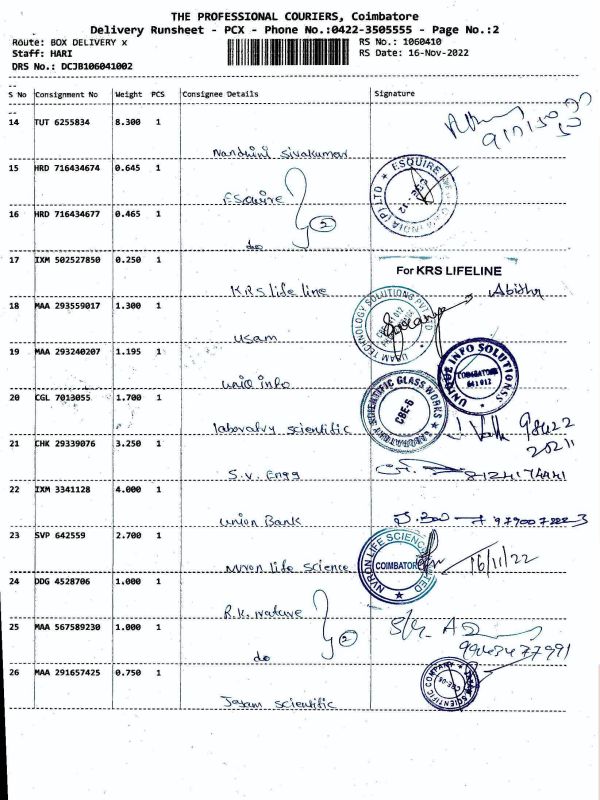 THE PROFESSIONAL COURIERS, Coimbatore
Delivery Runsheet - PCX - Phone No.:0422-3505555 - Page No.:2
Route: BOX DELIVERY x
Staff: HARI
DRS No.: DCJB106041002
RS No.: 1060410
RS Date: 16-Nov-2022
S No Consignment No Weight PCS Consignee Details Signature
14 TUT 6255834 8.300 1
Nandhini Sivakumar
15 HRD 716434674 0.645 1
Esquire
ESQUIRE
INDIA (P) LTD
16 HRD 716434677 0.465 1
do
2
17 IXM 502527850 0.250 1
KRS life line
For KRS LIFELINE
18 MAA 293559017 1.300 1
usam
USAM TECHNOLOGY SOLUTIONS PVT LTD
19 MAA 293240207 1.195 1
uniq info
INFO SOLUTIONS
COIMBATORE
641 012
20 CGL 7013055 1.700 1
SCIENTIFIC GLASS WORKS
CBE-6
21 CHK 29339076 3.250 1
98422
20211
S.V. Engg
22 IXM 3341128 4.000 1
union Bank
23 SVP 642559 2.700 1
nvron life science
NVRON LIFE SCIENCE LIMITED
COIMBATORE
16/11/22
24 DDG 4528706 1.000 1
25 MAA 567589230 1.000 1
do
2
26 MAA 291657425 0.750 1
Jayam scientific
SCIENTIFIC COMPANY